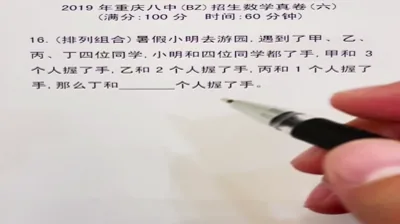 2019 年重庆八中(BZ)招生数学真卷(六)
(满分:100 分　时间:60 分钟)
16. (排列组合) 暑假小明去游园, 遇到了甲、乙、
丙、丁四位同学, 小明和四位同学都了手, 甲和 3
个人握了手, 乙和 2 个人握了手, 丙和 1 个人握了
手, 那么丁和______个人握了手。